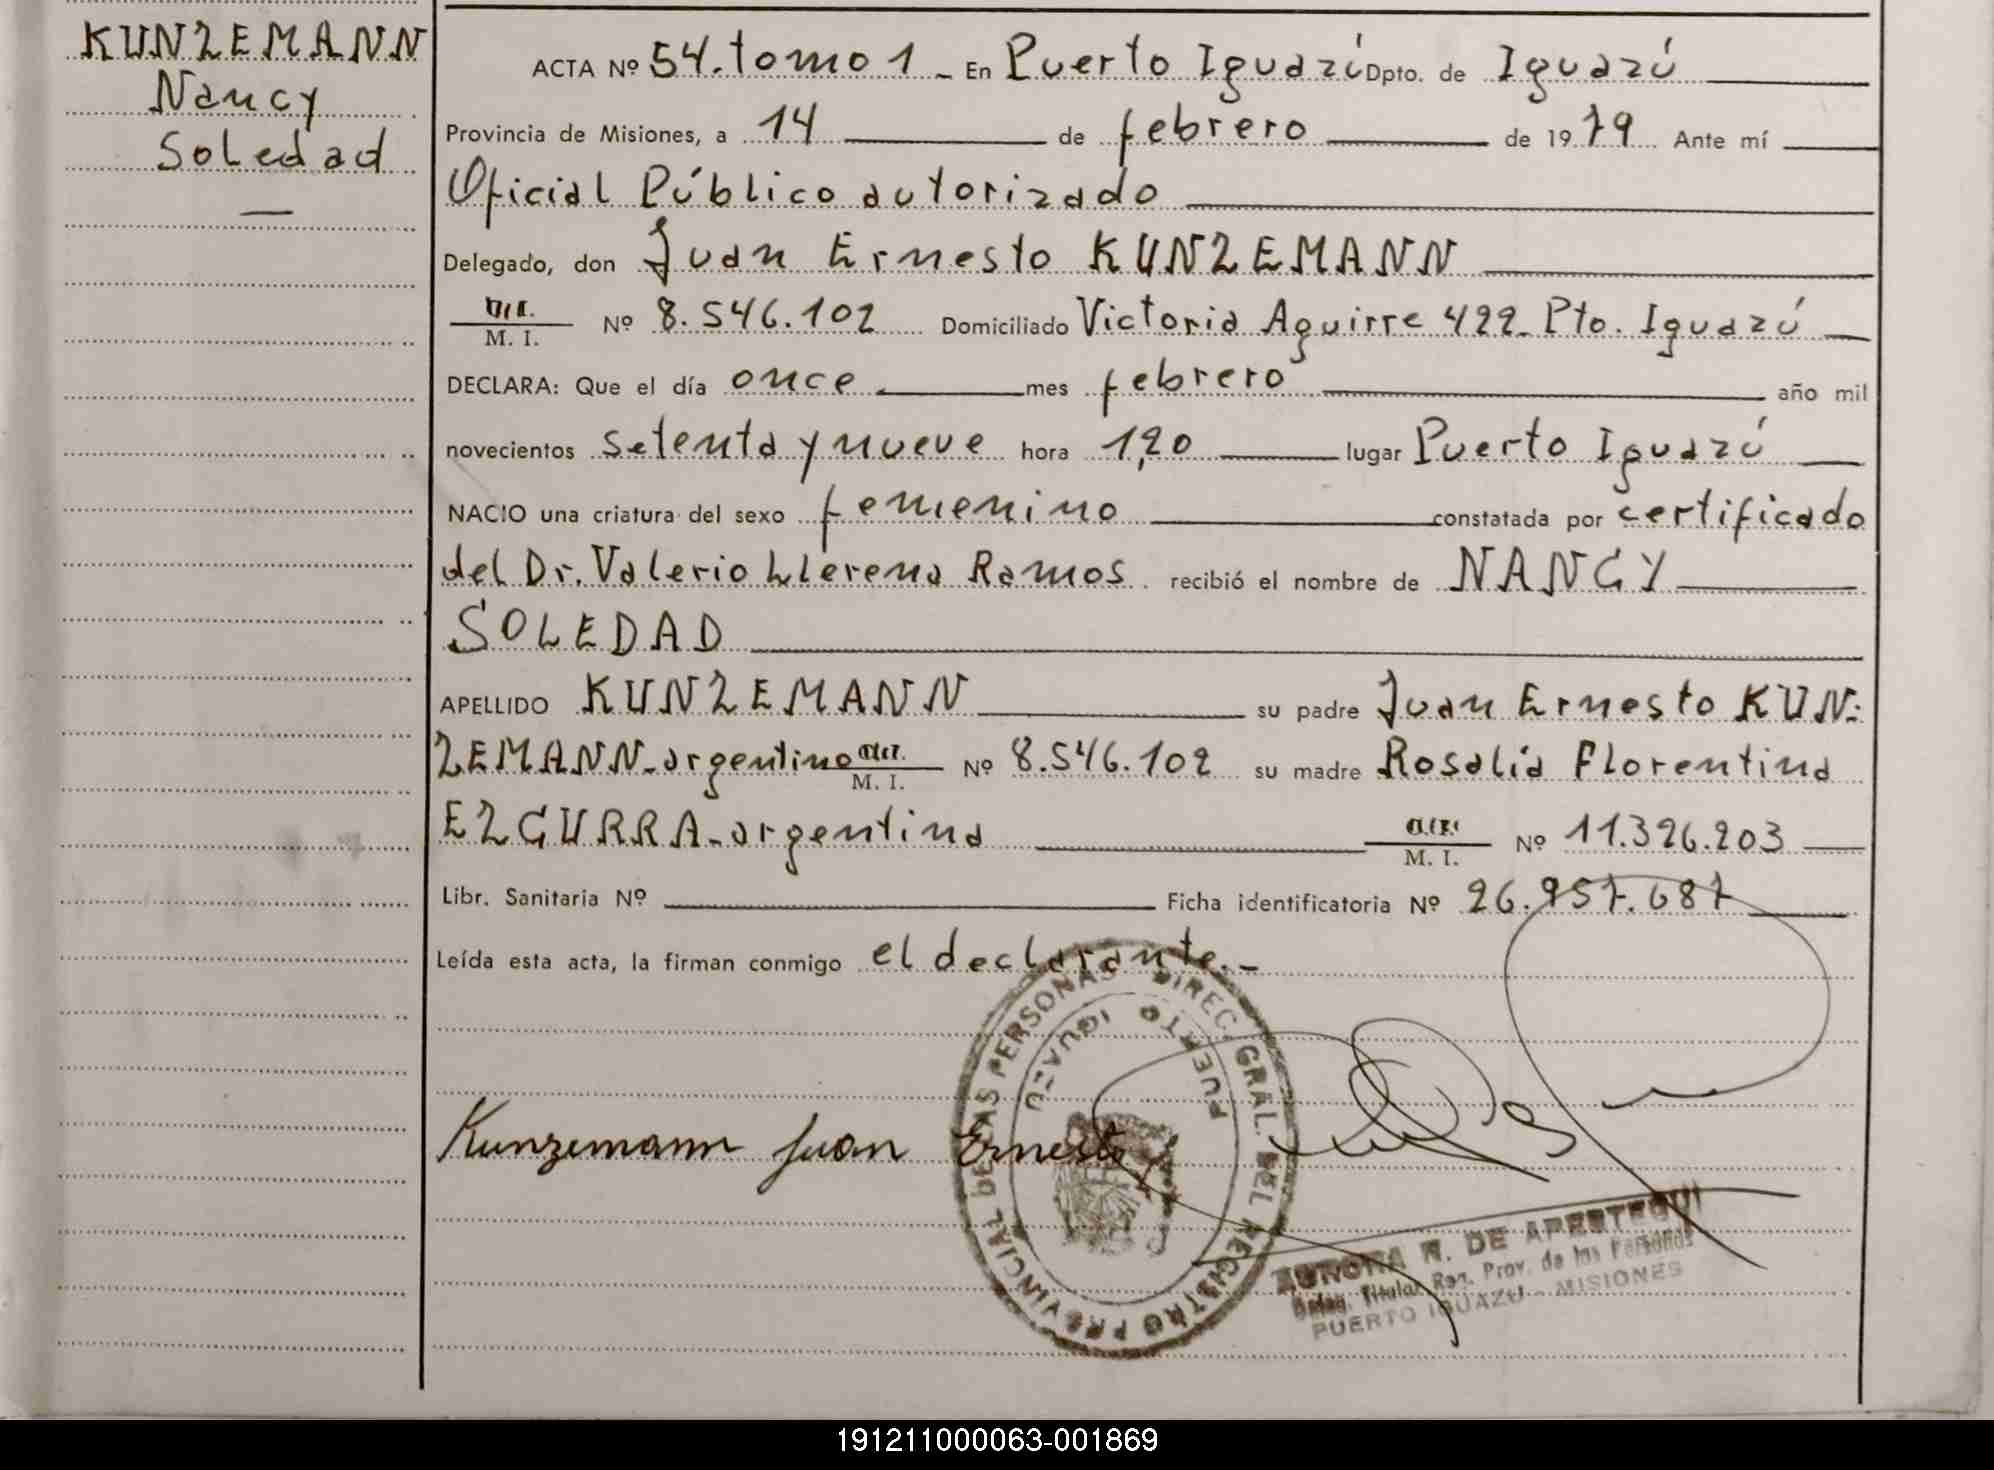 KUNZEMANN
Nancy
Soledad
ACTA Nº 54. tomo 1 - En Puerto Iguazú Dpto. de Iguazú
Provincia de Misiones, a 14 de febrero de 1979 Ante mí
Oficial Público autorizado
Delegado, don Juan Ernesto KUNZEMANN
M. I. Nº 8.546.102 Domiciliado Victoria Aguirre 422- Pto. Iguazú
DECLARA: Que el día once mes febrero año mil
novecientos setenta y nueve hora 1,20 lugar Puerto Iguazú
NACIO una criatura del sexo femenino constatada por certificado
del Dr. Valerio Llerena Ramos recibió el nombre de NANCY
SOLEDAD
APELLIDO KUNZEMANN su padre Juan Ernesto KUN-
ZEMANN-argentino M. I. Nº 8.546.102 su madre Rosalía Florentina
EZCURRA-argentina M. I. Nº 11.326.203
Libr. Sanitaria Nº Ficha identificatoria Nº 26.957.687
Leída esta acta, la firman conmigo el declarante.-
DIREC. GRAL. DEL REGISTRO PROVINCIAL DE LAS PERSONAS
PUERTO IGUAZU
Kunzemann Juan Ernesto
AURORA N. DE APESTEGUI
Deleg. Titular Reg. Prov. de las Personas
PUERTO IGUAZU - MISIONES
191211000063-001869